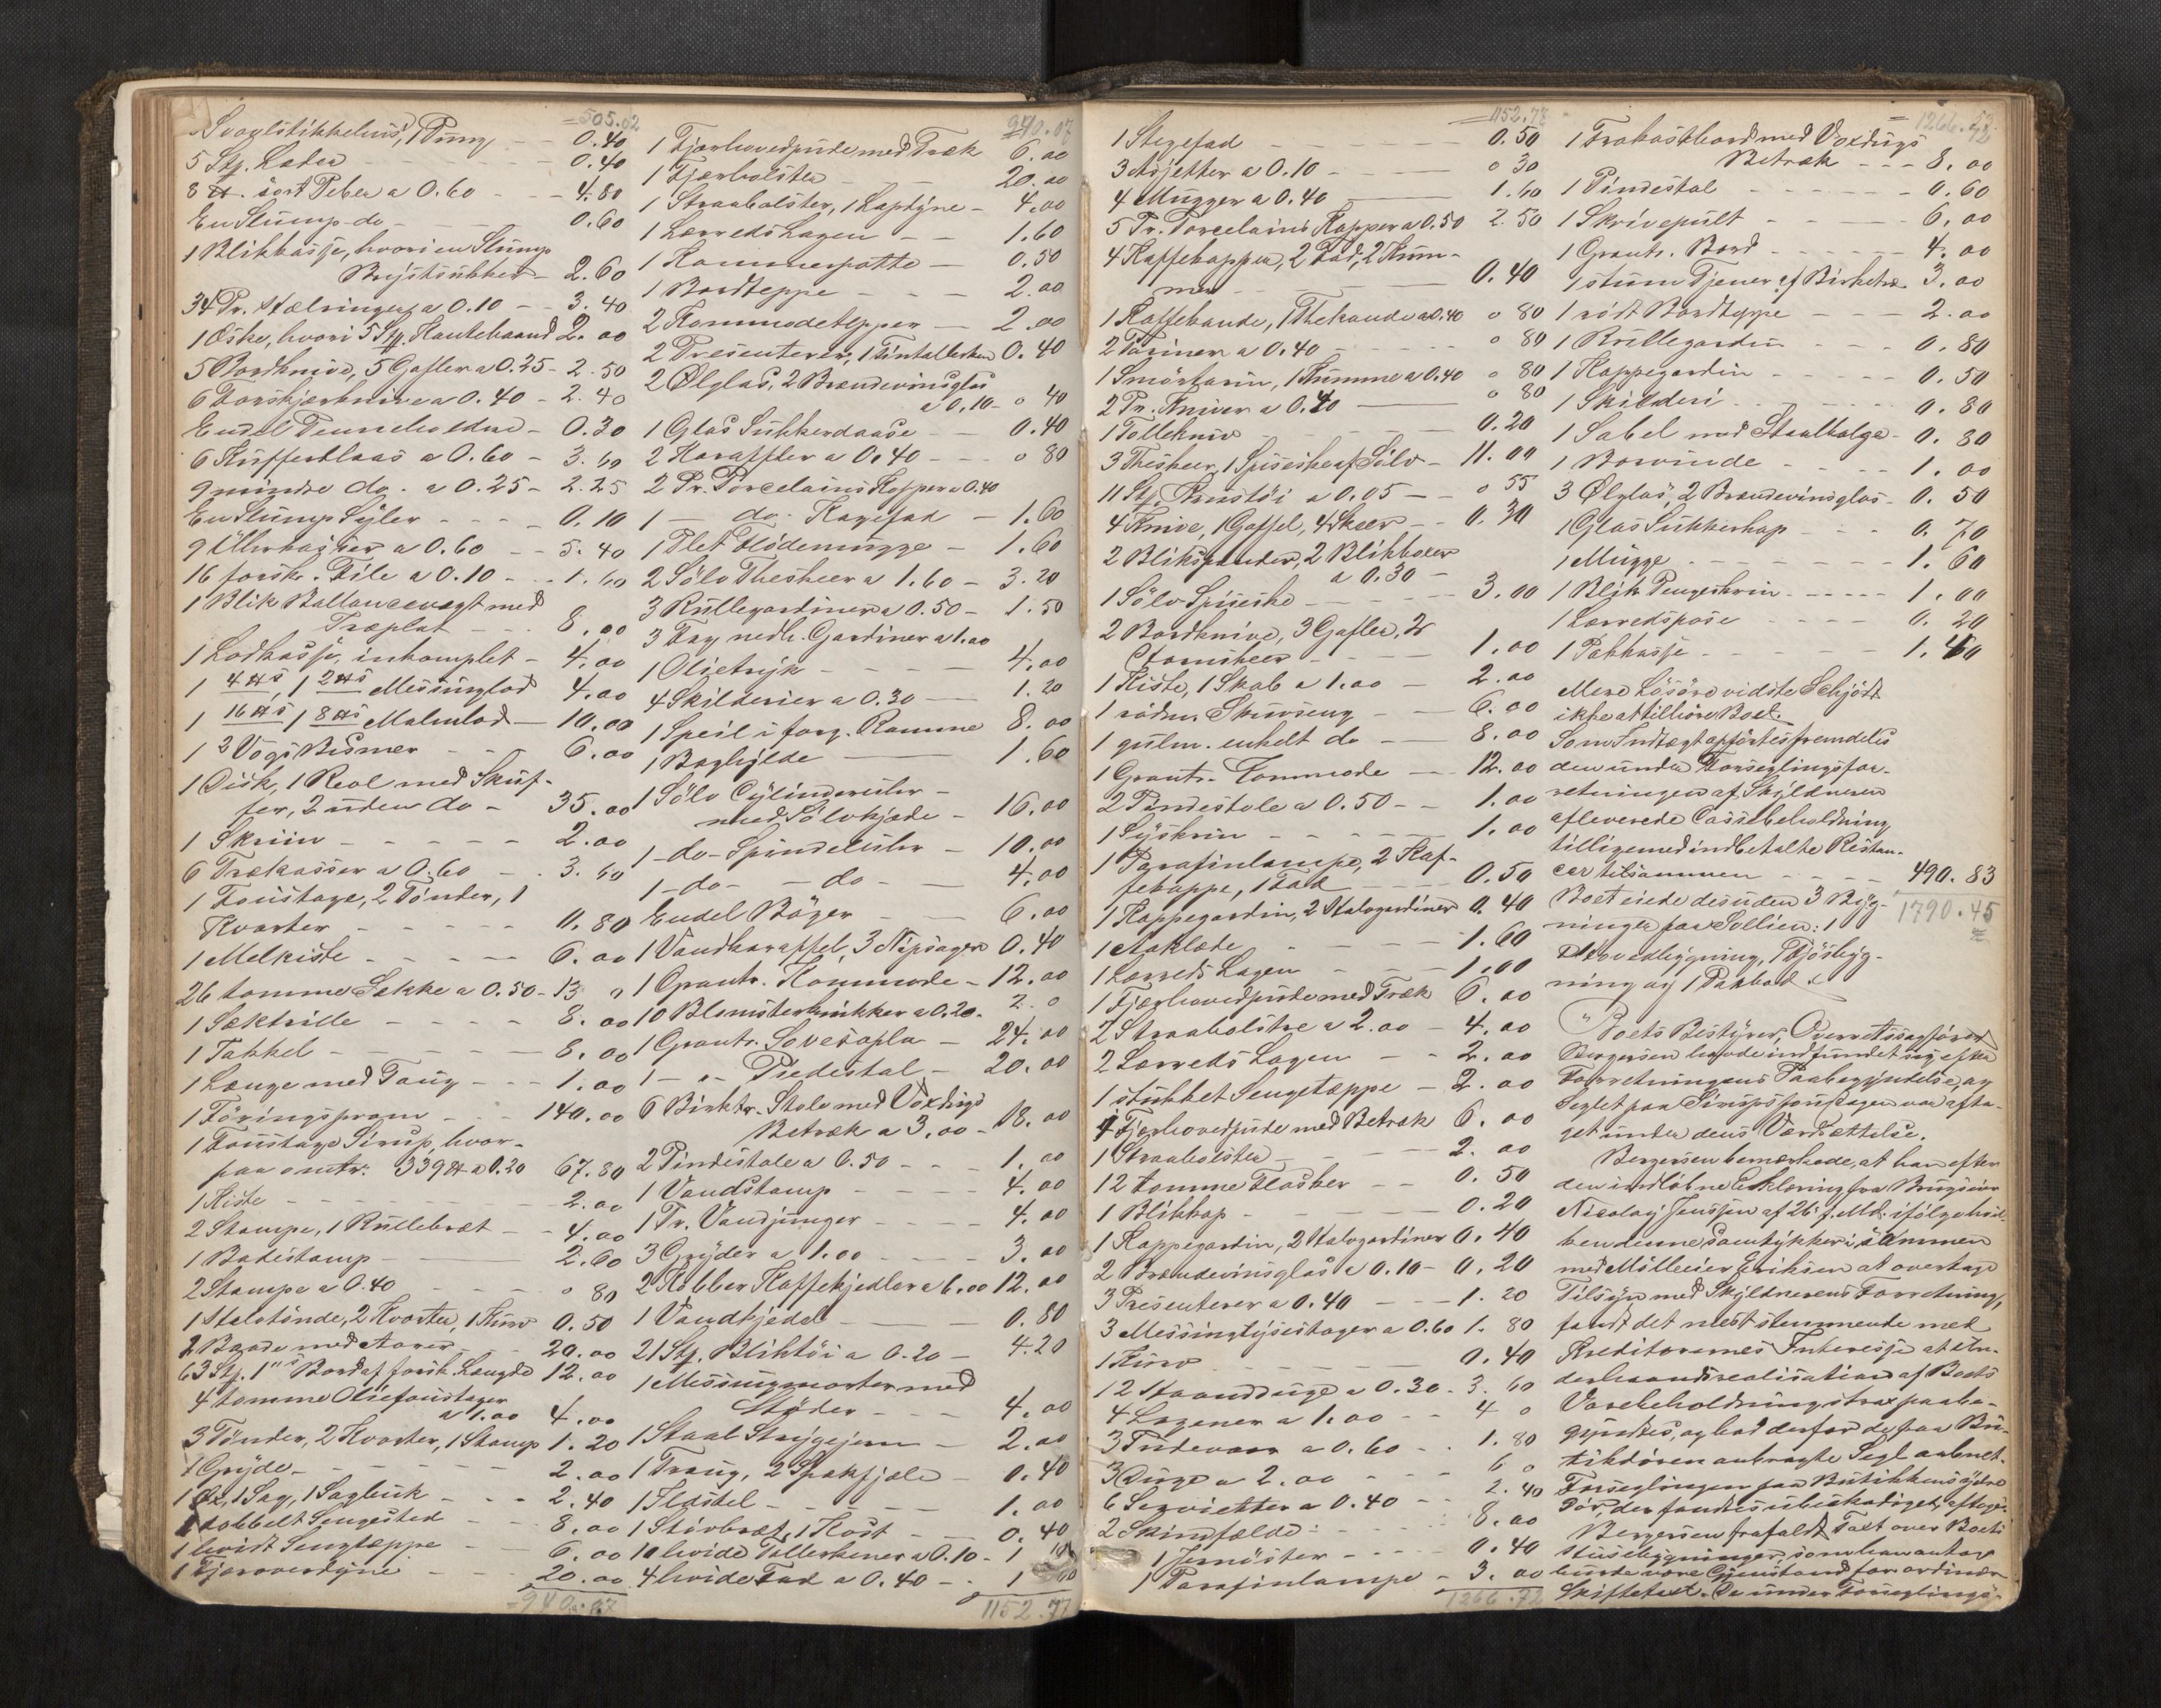 = 505.02
Svovlstikkehuus, 1 Pung - - 0.40
5 Stk. Læder - - - 0.40
8 ℔. sort Peber a 0.60 - - 4.80
En Slump do - - - 0.60
1 Blikkasse, hvori en Slump
Brystsukker - 2.60
34 Pr. Stolringer a 0.10 - - 3.40
1 Æske, hvori 5 Stk. Kantebaand 2.00
5 Bordknive, 5 Gafler a 0.25 - 2.50
6 Forskjærknive a 0.40 - 2.40
Endel Penneholdere - 0.30
6 Kuffertlaas a 0.60 - 3.60
9 mindre do. a 0.25 - 2.25
En Slump Syler - - - - 0.10
9 a 0.60 - - 5.40
16 forskj. File a 0.10 - - 1.60
1 Blik Ballancevægt med
Træplat - - - 8.00
1 Lodkasse, inkomplet - 4.00
1 4 ℔s, 1 2 ℔s Messinglod 4.00
1 16 ℔s 1 8 ℔s Malmlod - 10.00
1 3 Vogs Bismer - - 6.00
1 Disk, 1 Reol med Skuf-
fer, 2 uden do - 35.00
1 Skriin - - - - - 2.00
6 Trækasser a 0.60 - - 3.60
1 Foustage, 2 Tönder, 1
Kvarter - - - - - 0.80
1 Melkiste - - - - - 6.00
26 tomme Sække a 0.50 - 13 "
1 Sæktrille - - - - 8.00
1 Takkel - - - - - 8.00
1 Længe med Taug - - - 1.00
1 Föringspram - - - 140.00
1 Foustage Sirup, hvor-
paa omtr: 339 ℔ a 0.20 67.80
1 Kiste - - - - - - 2.00
2 Stampe, 1 Rullebræt - - 4.00
1 Badestamp - 2.60
2 Stampe a 0.40 - - - " 80
1 Staltönde, 2 Kvarter, 1 Kurv 0.50
2 Baade med Aarer - - 20.00
63 Stk. 1" s Bord af forsk. Længde 12.00
4 tomme Oliefoustager
a 1.00 4.00
3 Tönder, 2 Kvarter, 1 Stamp 1.20
1 Gryde - - - - - - 2.00
1 Öx, 1 Sag, 1 Sagbuk - - - 2.40
1 dobbelt Sengested - - - 8.00
1 hvidt Sengtæppe - - 6.00
1 Fjæroverdyne - - - 20.00
= 940.07
940.07
1 Fjærhovedpude med Træk 6.00
1 Fjærbolster - - - - 20.00
1 Straabolster, 1 Lapdyne - 4.00
1 Lærreds Lagen - - 1.60
1 Kammerpotte - 0.50
1 Bordteppe - - - 2.00
2 Kommodetepper - 2.00
2 Presenterer, 1 Tintallerken 0.40
2 Ølglas, 2 Brændevinsglas
a 0.10 - " 40
1 Glas Sukkerdaase - 0.40
2 Karafler a 0.40 - - - " 80
2 Pr. Porcelains Kopper a 0.40
1 - do - Kagefad - 1.60
1 Plet Flödemugge - 1.60
2 Sölv Theskeer a 1.60 - 3.20
3 Rullegardiner a 0.50 - 1.50
3 Fag nedh. Gardiner a 1.00
1 Olietryk - - - - 4.00
4 Skilderier a 0.30 - 1.20
1 Speil i forg. Ramme 8.00
1 Boghylde - 1.60
1 Sölv Cylinderuhr -
med Sölvkjæde - 16.00
1 - do - Spindeluhr - 10.00
1 - do - - do - - 4.00
Endel Böger - - - 6.00
1 Vandkaraffel, 3 Nipsager 0.40
1 Grantr. Kommode - 12.00
10 Blomsterkrukker a 0.20 - 2.0
1 Grantr. Sovesopha - 24.00
1 - " - Piedestal - 20.00
6 Birktr. Stole med Voxdugs
Betræk a 3.00 - 18.00
2 Pindestole a 0.50 - - - 1.00
1 Vandstamp - - - - 4.00
1 Tr. Vandjunger - - - - 4.00
3 Gryder a 1.00 - - - 3.00
2 Kobber Kaffekjedler a 6.00 12.00
1 Vandkjedel - - 0.80
21 Stk. Bliktöi a 0.20 - 4.20
1 Messingmorter med
Stöder - - - 4.00
1 Staal Strygejern - 2.00
1 Traug, 2 Spækfjæle - 0.40
1 Ildstel - - - - - - 1.00
1 Störbræt, 1 Kost - - 0.40
10 hvide Tallerkener a 0.10 - 1 00
4 hvide Fad a 0.40 - - 1 60
1152.77
1152.77
1 Stegefad - - - - 0.50
3 Asjetter a 0.10 - - " 30
4 Mugger a 0.40 - 1.60
5 Pr. Porcelains Kopper a 0.50 2.50
4 Kaffekopper, 2 Fad, 2 Kum-
mer - - 0.40
1 Kaffekande, 1 Thekande a 0.40 " 80
2 Tariner a 0.40 - - - " 80
1 Smörtarin, 1 Kumme a 0.40 " 80
2 Pr. Kniver a 0.40 - " 80
1 Tollekniv - - - - 0.20
3 Theskeer, 1 Spiseske af Sölv - 11.00
11 Stk. Krustöi a 0.05 - - " 55
4 Knive, 1 Gaffel, 4 Skeer - - 0.30
2 Blikspander, 2 Blikboxer
a 0.30 -
1 Sölv Spiseske - - - - 3.00
2 Bordknive, 3 Gafler, 2
Hornskeer - - - 1.00
1 Kiste, 1 Skab a 1.00 - 2.00
1 rödm. Skuvseng - - 6.00
1 gulm. enkelt do - 8.00
1 Grantr. Commode - 12.00
2 Pindestole a 0.50 - - 1.00
1 Syskrin - - - - - 1.00
1 Parafinlampe, 2 Kaf-
fekoppe, 1 Fad - - - 0.50
1 Kappegardin, 2 Halvgardiner 0.40
1 Aaklæde - - - - 1.60
1 Lærreds Lagen - - - 1.00
1 Fjærhovedpude med Træk 6.00
2 Straabolstre a 2.00 - 4.00
2 Lærreds Lagen - - 2.00
1 stukket Sengetæppe - 2.00
1 Fjærhovedpude med Betræk 6.00
1 Straabolster - - - - 2.00
12 tomme Flasker - - 0.50
1 Blikkop - - - - - 0.20
1 Kappegardin, 2 Halvgardiner 0.40
2 Brændevinsglas a 0.10 - 0.20
3 Presenterer a 0.40 - - - 1.20
3 Messinglysestager a 0.60 1.80
1 Kurv - - - - - - 0.40
12 Haandduge a 0.30 - 3.60
4 Lagener a 1.00 - - 4 "
3 Pudevaar a 0.60 - - 1.80
3 Duge a 2.00 - - - 6 "
6 Servietter a 0.40 - - 2.40
2 Skindfælde - - - - 8.00
1 Jernöster - - - - 0.40
1 Parafinlampe - 3.00
1266.72
= 1266.72
1 Frokostbord med Voxdugs
Betræk - - - 8.00
1 Pindestol - - - - - 0.60
1 Skrivepult - - - - 6.00
1 Grantr. Bord - - - - 4.00
1 stum Tjener af Birketræ 3.00
1 rödt Bordteppe - - - 2.00
1 Rullegardin - - - 0.80
1 Kappegardin - - - - 0.50
1 Skilderi - - - - - 0.80
1 Sabel med Staalbalge - 0.80
1 Borvinde - - - - - 1.00
3 Ølglas, 2 Brændevinsglas - 0.50
1 Glas Sukkerkop - - - 0.70
1 Mugge - - - - - - - 1.60
1 Blik Pengeskrin - - - - - 1.00
1 Lærredspose - - - - 0.20
1 Pakkasse - - - - - - 1.40
Mere Lösöre vidste Schjödt
ikke at tilhöre Boet.
Som Indtægt opförtes fremdeles
den under Forseglingsfor-
retningen af Skyldneren
afleverede Cassebeholdning
tilligemed indbetalte Restan-
cer tilsammen - - - - 490.83
1790.45
Boet eiede desuden 3 Byg-
ninger paa Sollien: 1
Hovedbygning, 1 Fjösbyg-
ning og 1 Pakbod
Boets Bestyrer, Overretssagförer
Bergersen havde indfundet sig efter
Forretningens Paabegyndelse, og
Seglet paa Sirupsfoustagen var afta-
get under dens Værdsættelse.
Bergersen bemærkede, at han efter
den indlöbne Erklæring fra Brugseier
Nicolay Jenssen af 26 f. Md. ifölge hvil-
ken denne samtykker i sammen
med Mölleeier Eriksen at overtage
Tilsyn med Skyldnerens Forretning,
fandt det mest stemmende med
Kreditorernes Interesse at Un-
derhaandsrealisation af Boets
Varebeholdning strax paabe-
gyndtes, og bad derfor de paa Bu-
tikdören anbragte Segl aabnet.
Forseglingen paa Butikkens ydre
Dör, der fandtes ubeskadiget, aftoges.
Bergersen frafaldt Taxt over Boets
Huusbygninger, som han antog
burde være Gjenstand for ordinær
Skiftetaxt. De under Forseglings-